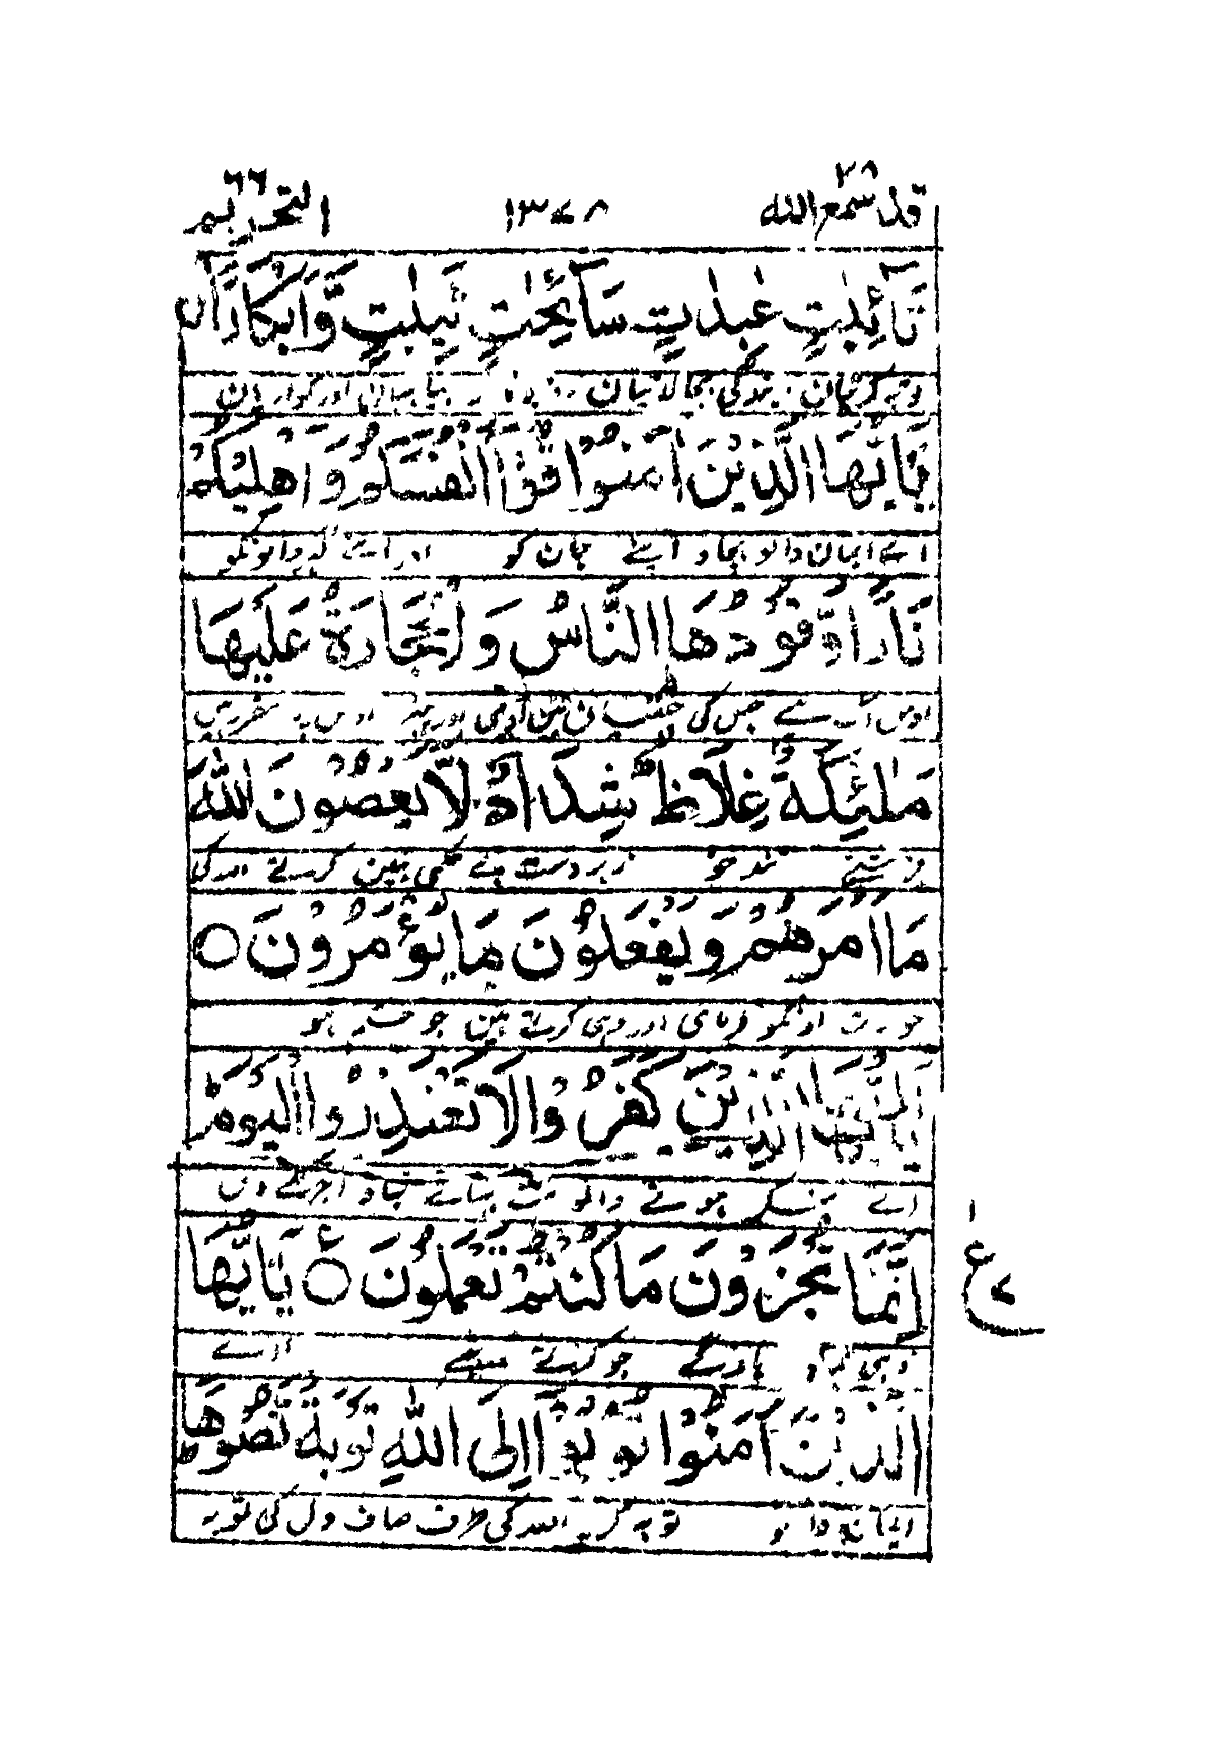 قد سمع الله ٢٨ ١٣٧٨ التحريم ٦٦
تٰٓئِبٰتٍ عٰبِدٰتٍ سٰٓئِحٰتٍ ثَيِّبٰتٍ وَّاَبْكَارًا ۝
توبہ کرتیاں بندگی بجا لاتیاں بیاہیاں اور کواریاں
يٰٓاَيُّهَا الَّذِيْنَ اٰمَنُوْا قُوْٓا اَنْفُسَكُمْ وَاَهْلِيْكُمْ
اے ایمان والو بچاؤ اپنے جان کو اور اپنے گھر والونکو
نَارًا وَّقُوْدُهَا النَّاسُ وَالْحِجَارَةُ عَلَيْهَا
اوس آگ سے جس کی چھپٹیاں ہیں آدمی اور پتھر اوس پہ مقرر ہیں
مَلٰٓئِكَةٌ غِلَاظٌ شِدَادٌ لَّا يَعْصُوْنَ اللّٰهَ
فرشتے تندخو زبردست بے حکمی نہیں کرتے اللہ کی
مَآ اَمَرَهُمْ وَيَفْعَلُوْنَ مَا يُؤْمَرُوْنَ ۝
جو بات اونکو فرمائی اور وہی کرتے ہیں جو حکم ہو
يٰٓاَيُّهَا الَّذِيْنَ كَفَرُوْا لَا تَعْتَذِرُوا الْيَوْمَ
اے منکر ہونے والو مت بہانے بتاؤ آجکے دن
اِنَّمَا تُجْزَوْنَ مَا كُنْتُمْ تَعْمَلُوْنَ ۝ يٰٓاَيُّهَا
وہی بدلا پاؤگے جو کرتے تھے اے
الَّذِيْنَ اٰمَنُوْا تُوْبُوْٓا اِلَى اللّٰهِ تَوْبَةً نَّصُوْحًا
ایمان والو توبہ کرو اللہ کی طرف صاف دل کی توبہ
١ ع ٧